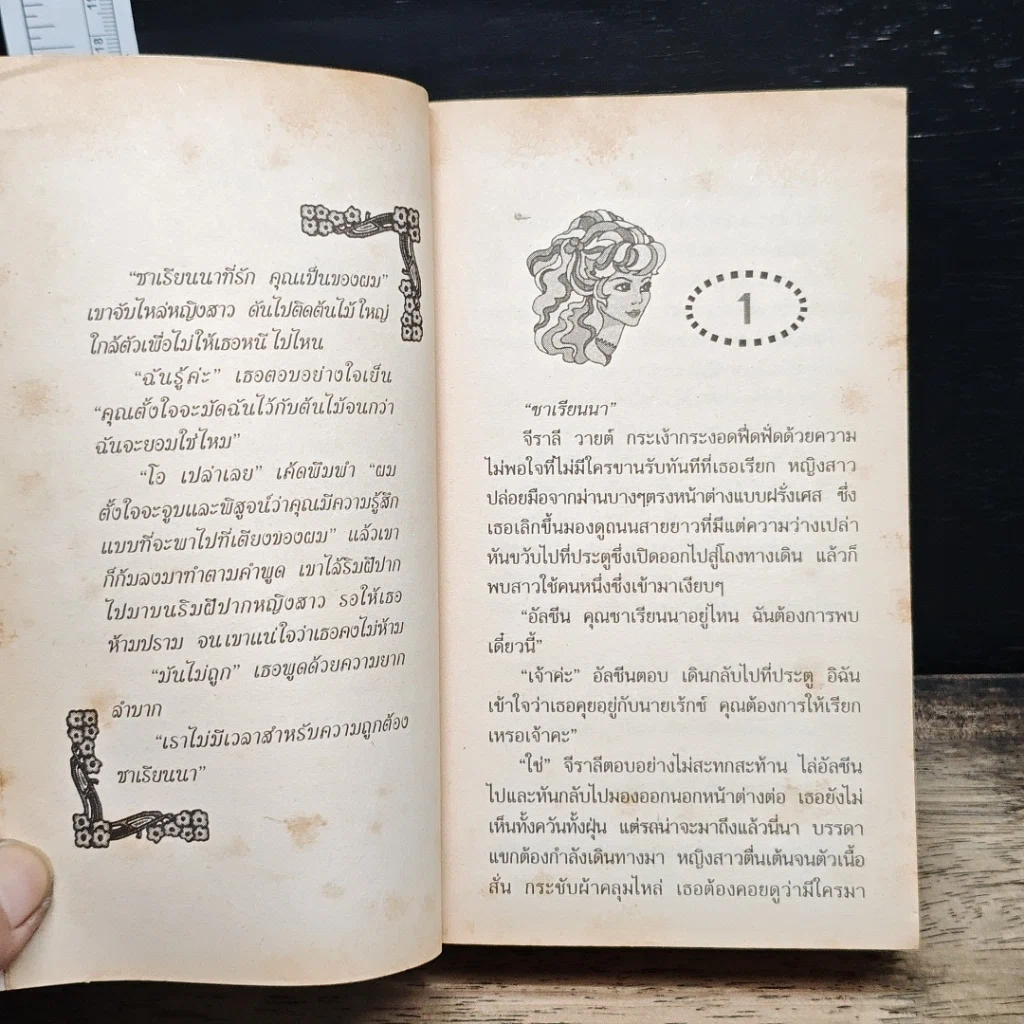 18
“ซาเรียนนาที่รัก คุณเป็นของผม”
เขาจับไหล่หญิงสาว ดันไปติดต้นไม้ใหญ่
ใกล้ตัวเพื่อไม่ให้เธอหนีไปไหน
“ฉันรู้ค่ะ” เธอตอบอย่างใจเย็น
“คุณตั้งใจจะมัดฉันไว้กับต้นไม้จนกว่า
ฉันจะยอมใช่ไหม”
“โอ เปล่าเลย” เค้ดพึมพำ “ผม
ตั้งใจจะจูบและพิสูจน์ว่าคุณมีความรู้สึก
แบบที่จะพาไปที่เตียงของผม” แล้วเขา
ก็ก้มลงมาทำตามคำพูด เขาไล้ริมฝีปาก
ไปมาบนริมฝีปากหญิงสาว รอให้เธอ
ห้ามปราม จนเขาแน่ใจว่าเธอคงไม่ห้าม
“มันไม่ถูก” เธอพูดด้วยความยาก
ลำบาก
“เราไม่มีเวลาสำหรับความถูกต้อง
ซาเรียนนา”
1
“ซาเรียนนา”
จีราลี วายต์ กระเง้ากระงอดฟืดฟัดด้วยความ
ไม่พอใจที่ไม่มีใครขานรับทันทีที่เธอเรียก หญิงสาว
ปล่อยมือจากม่านบางๆตรงหน้าต่างแบบฝรั่งเศส ซึ่ง
เธอเลิกขึ้นมองดูถนนสายยาวที่มีแต่ความว่างเปล่า
หันขวับไปที่ประตูซึ่งเปิดออกไปสู่โถงทางเดิน แล้วก็
พบสาวใช้คนหนึ่งซึ่งเข้ามาเงียบๆ
“อัลซีน คุณซาเรียนนาอยู่ไหน ฉันต้องการพบ
เดี๋ยวนี้”
“เจ้าค่ะ” อัลซีนตอบ เดินกลับไปที่ประตู อิฉัน
เข้าใจว่าเธอคุยอยู่กับนายเร้กซ์ คุณต้องการให้เรียก
เหรอเจ้าคะ”
“ใช่” จีราลีตอบอย่างไม่สะทกสะท้าน ไล่อัลซีน
ไปและหันกลับไปมองออกนอกหน้าต่างต่อ เธอยังไม่
เห็นทั้งควันทั้งฝุ่น แต่รถน่าจะมาถึงแล้วนี่นา บรรดา
แขกต้องกำลังเดินทางมา หญิงสาวตื่นเต้นจนตัวเนื้อ
สั่น กระชับผ้าคลุมไหล่ เธอต้องคอยดูว่ามีใครมา